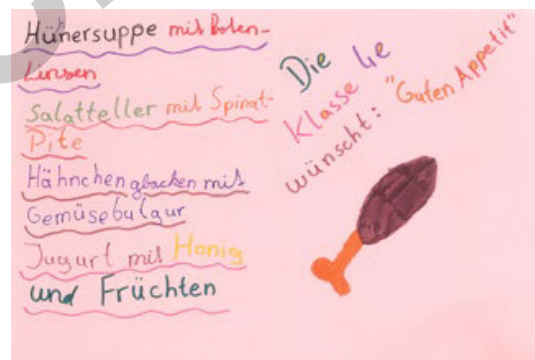 Hünersuppe mit Roten-
Linsen
Salatteller mit Spinat-
Pite
Hähnchen gbacken mit
Gemüsebulgur
Jugurt mit Honig
und Früchten
Die 4e
Klasse
wünscht: "Guten Appetit"